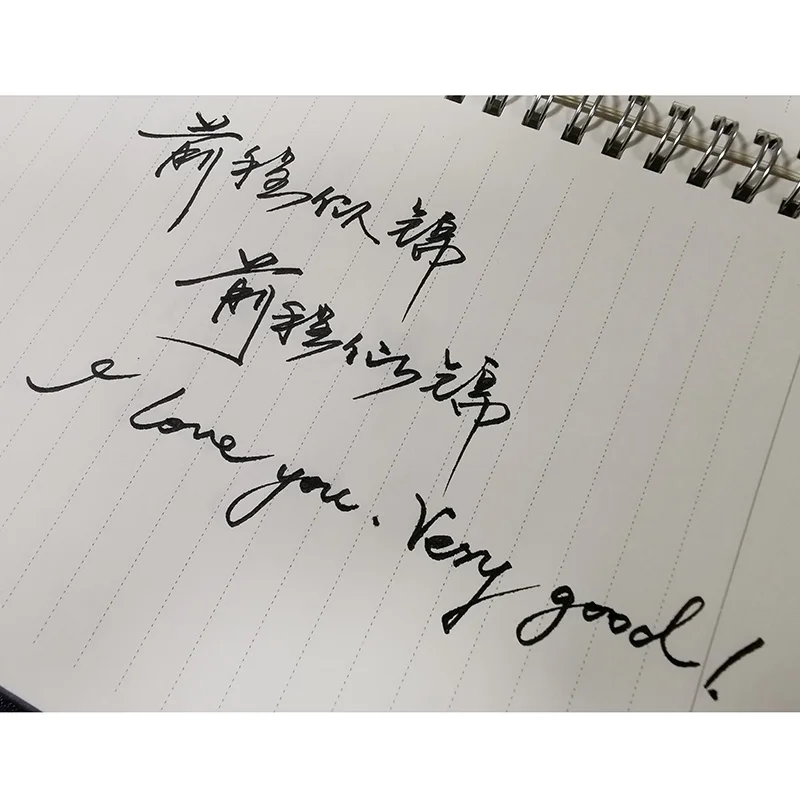 前程似锦
前程似锦
I love you. Very good!